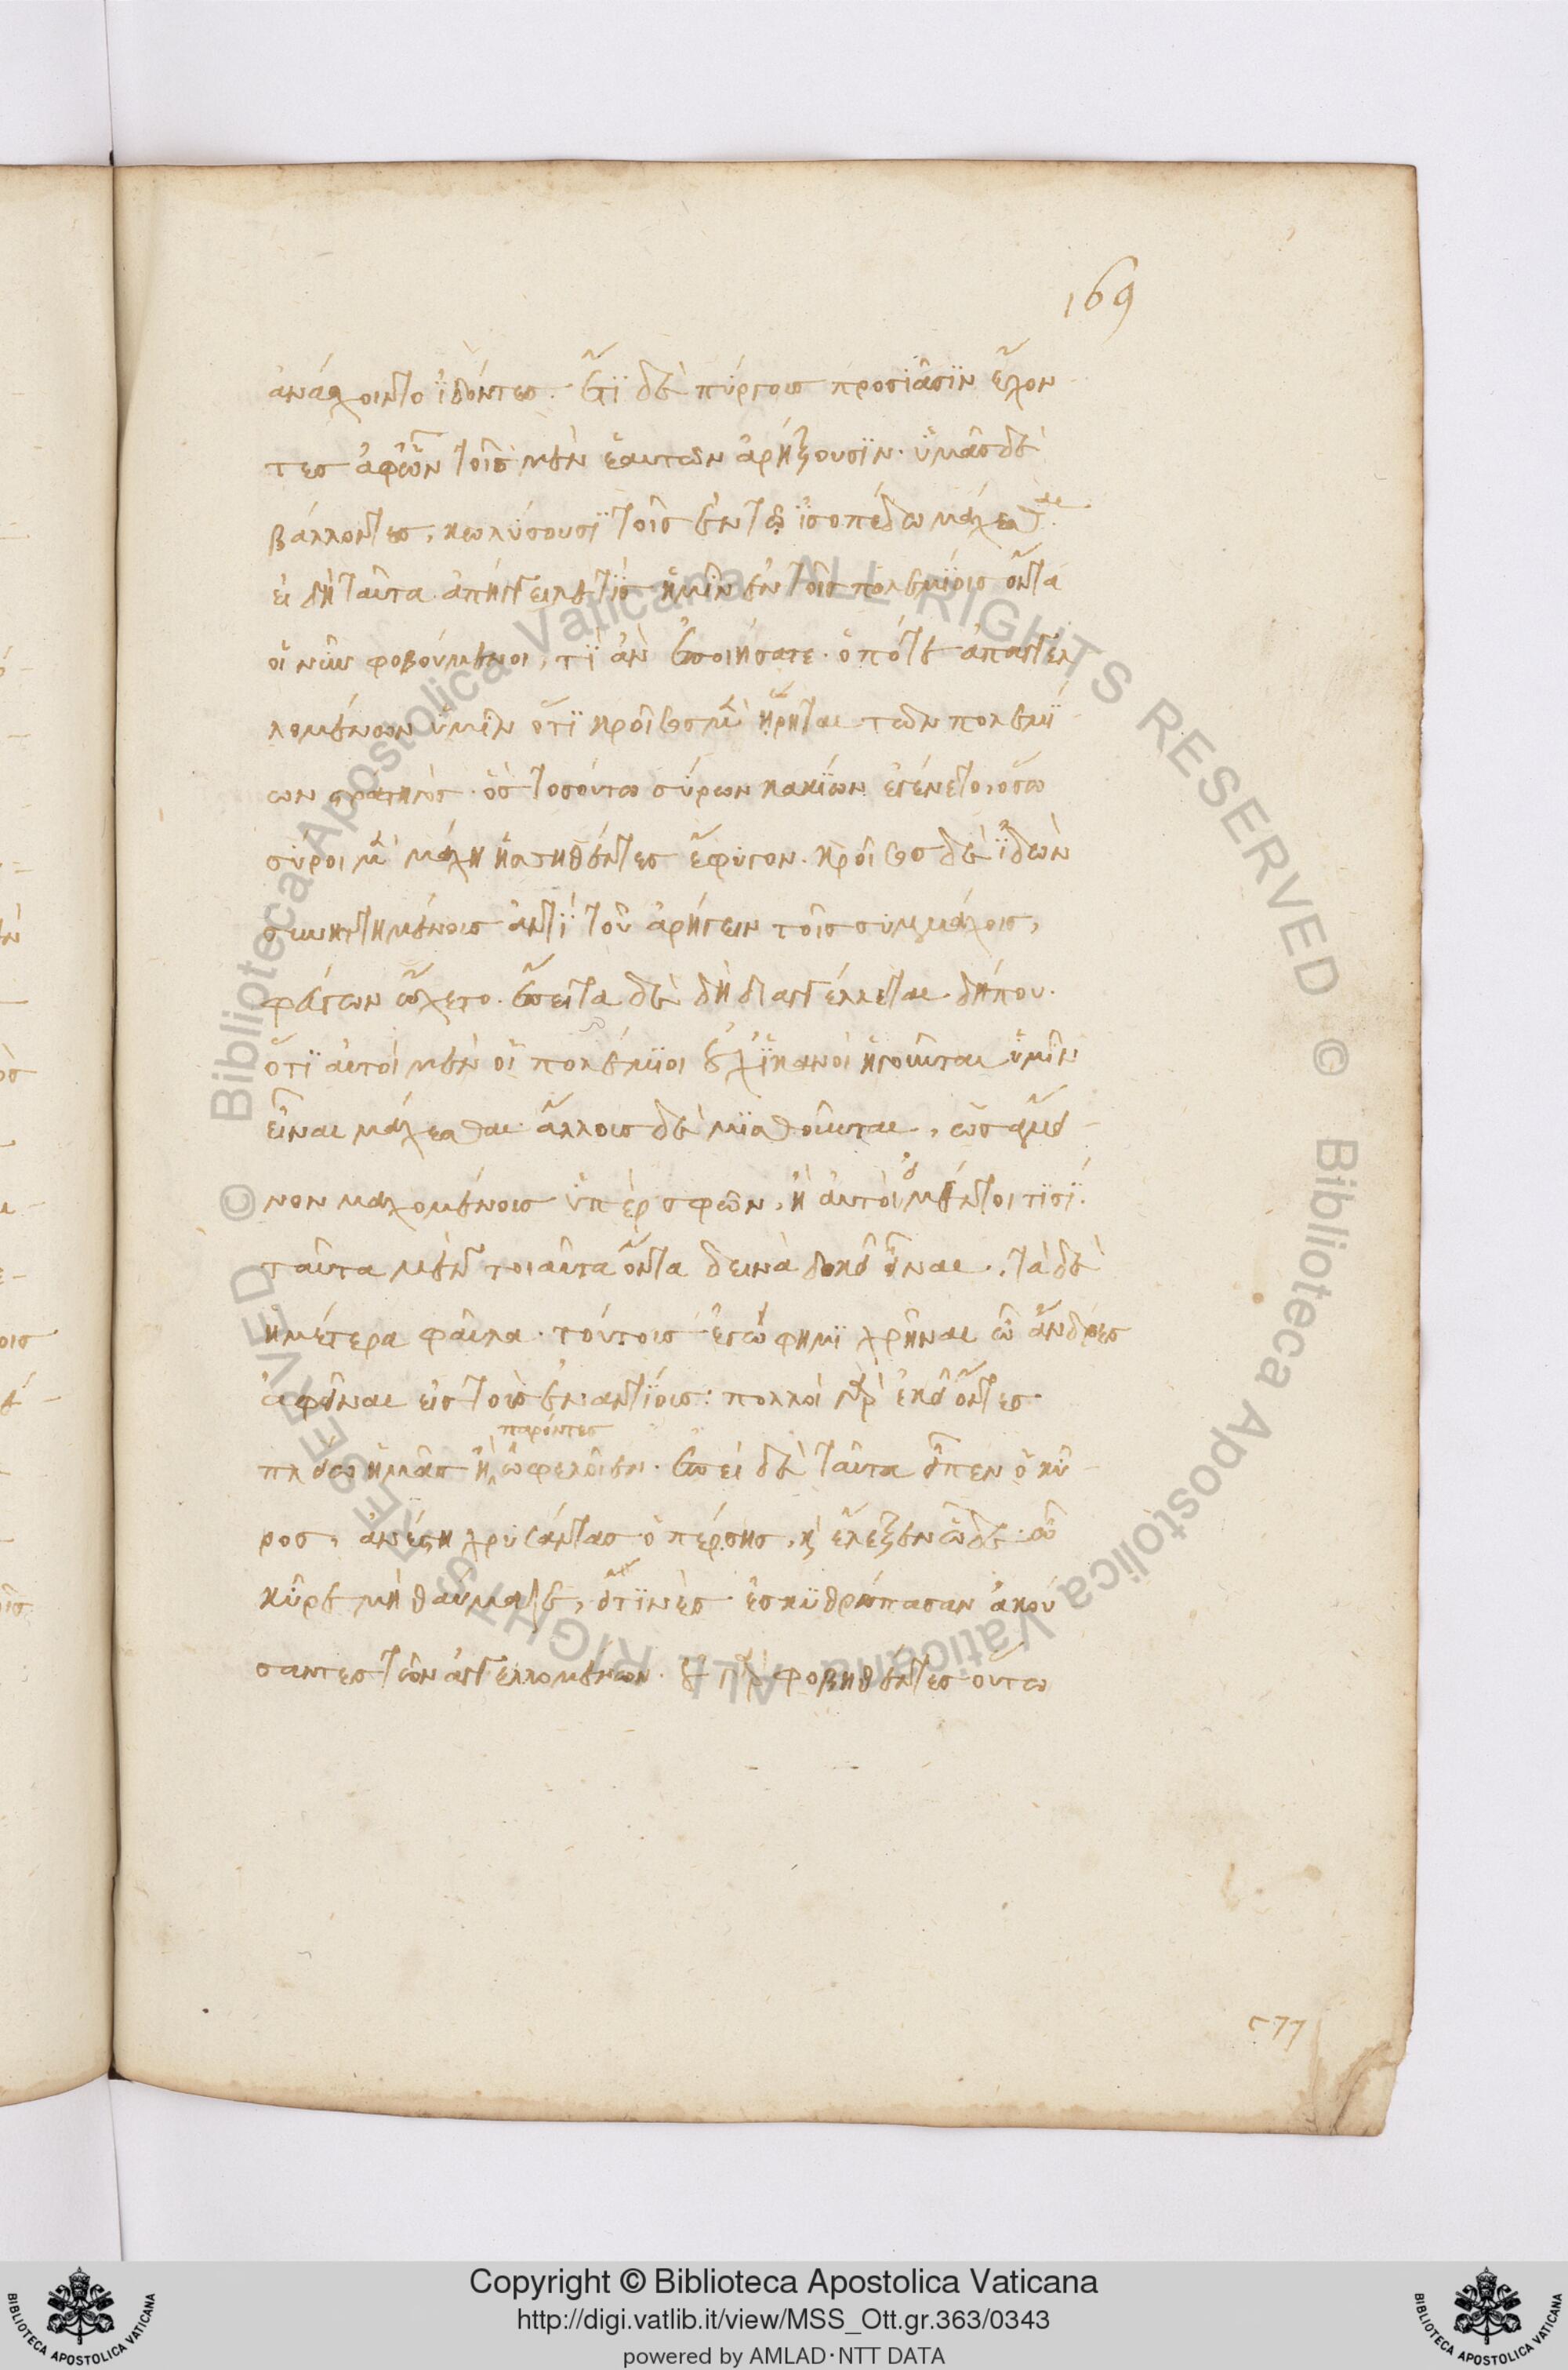 169
ἀνάσχοιντο ἰδόντες. ἔτι δὲ πύργοις προσίασιν ἔχον
τες ἀφ' ὧν τοῖς μὲν ἑαυτῶν ἀρήξουσιν. ὑμᾶς δὲ
βάλλοντες, κωλύσουσι τοῖς ἐν τῷ ἰσοπέδω μάχεσθαι
εἰ δὴ ταῦτα ἀπήγγειλέ τις ἡμῖν ἐν τοῖς πολεμίοις ὄντα
οἱ νῦν φοβούμενοι, τί ἂν ἐποιήσατε. ὁπότε ἀπαγγελ
λομένων ὑμῖν ὅτι κροῖσος μὲν ᾕρηται τῶν πολεμί
ων στρατηγὸς. ὃς τοσούτω σύρων κακίων ἐγένετο, ὅσω
σύροι μὲν μάχη ἡττηθέντες ἔφυγον. κροῖσος δὲ ἰδὼν
ἡττημένους ἀντὶ τοῦ ἀρήγειν τοῖς συμμάχοις,
φεύγων ᾤχετο. ἔπειτα δὲ δὴ διαγγέλλεται δήπου.
ὅτι αὐτοὶ μὲν οἱ πολέμιοι οὐχ ἱκανοὶ ἡγοῦνται ὑμῖν
εἶναι μάχεσθαι. ἄλλους δὲ μισθοῦνται, ὡς ἄμει
νον μαχομένους ὑπὲρ σφῶν, ἢ αὐτοί. εἰ μέντοι τισὶ
ταῦτα μὲν τοιαῦτα ὄντα δεινὰ δοκεῖ εἶναι. τὰ δὲ
ἡμέτερα φαῦλα. τούτους ἐγώ φημι χρῆναι ὦ ἄνδρες
ἀφεῖναι εἰς τοὺς ἐναντίους: πολλοὶ γὰρ ἐκεῖ ὄντες
πλείω ἡμᾶς ἢ παρόντες ὠφελοῖεν. ἐπεὶ δὲ ταῦτα εἶπεν ὁ κῦ
ρος, ἀνέστη χρυσάντας ὁ πέρσης, καὶ ἔλεξεν ὧδε. ὦ
κῦρε μὴ θαύμαζε, εἴ τινὲς ἐσκυθρώπασαν ἀκού
σαντες τῶν ἀγγελλομένων. οὐ γὰρ φοβηθέντες οὕτω
Copyright © Biblioteca Apostolica Vaticana
http://digi.vatlib.it/view/MSS_Ott.gr.363/0343
powered by AMLAD·NTT DATA